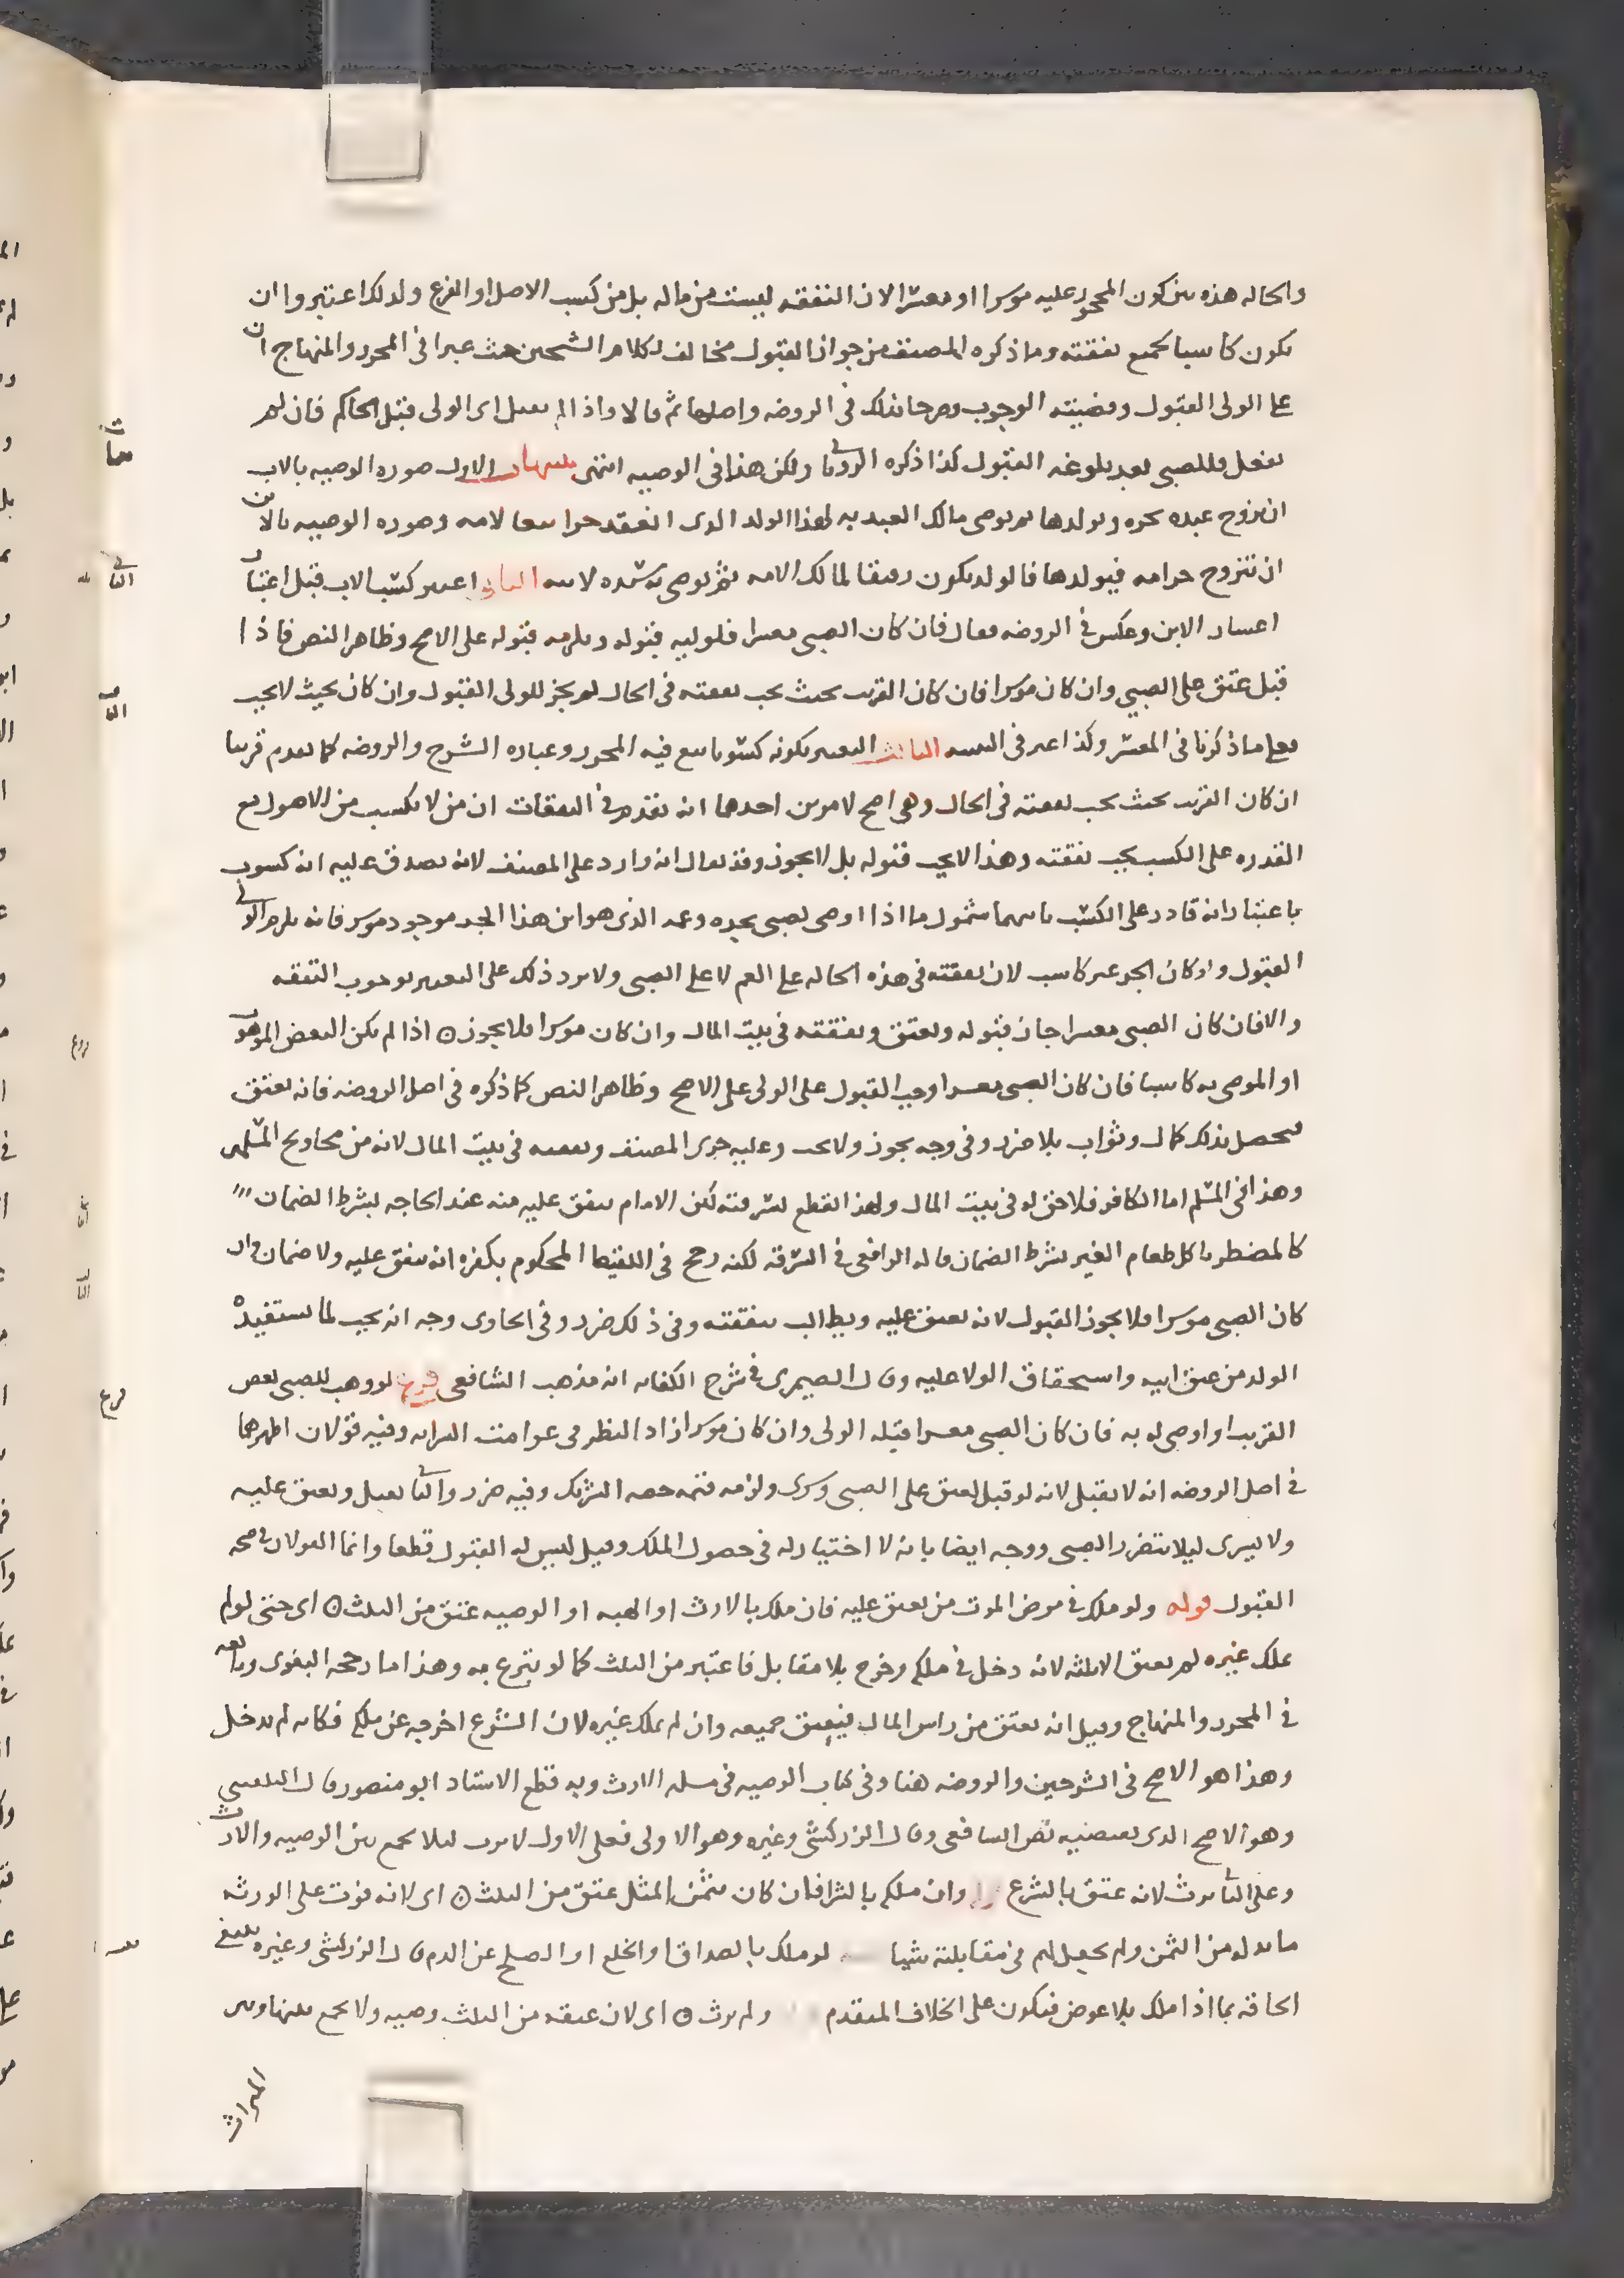 والحاله هذه بين كون المحجور عليه موسرا او معسرا لان النفقه ليست من ماله بل من كسب الاصل او الفرع ولذلك اعتبروا ان
يكون كاسبا لجميع نفقته وما ذكره المصنف من جواز القبول مخالف لكلام الشيخين حيث عبرا في المحرر والمنهاج ان
على الولى القبول وقضيته الوجوب وصرحا بذلك في الروضه واصلها ثم قالا واذا لم يقبل اى الولى قبل الحاكم فان لم
يفعل فللصبى بعد بلوغه القبول كذا ذكره الرويانى ولكن هذا في الوصيه انتهى تنبيهات الاول صوره الوصيه بالاب
ان يتزوج عبده بحره ويولدها ثم يوصى مالك العبد به لهذا الولد الذى انعقد حرا تبعا لامه وصوره الوصيه بالابن
ان يتزوج حر امه فيولدها فالولد يكون رقيقا لمالك الامه ثم يوصى به سيده لابيه الثانى اعتبر كسب الاب قبل اعتبار
اعسار الابن وعكس في الروضه فقال فان كان الصبى معسرا فلوليه قبوله ويلزمه قبوله على الاصح وظاهر النص فاذا
قبل عتق على الصبي وان كان موسرا فان كان القريب بحيث يجب نفقته فى الحال لم يجز للولى القبول وان كان بحيث لا يجب
فعلى ما ذكرنا فى المعسر وكذا عبر فى التنبيه الثالث التعبير بكونه كسوبا تبع فيه المحرر وعباره الشرح والروضه كما تقدم قريبا
ان كان القريب بحيث يجب نفقته فى الحال وهى اصح لامرين احدهما انه تقدم في النفقات ان من لا يكتسب من الاصول مع
القدره على الكسب يجب نفقته وهذا لا يجب قبوله بل لا يجوز وقد يقال انه وارد على المصنف لانه يصدق عليه انه كسوب
باعتبار انه قادر على الكسب ثانيهما شمول ما اذا اوصى لصبى بجده وعمه الذى هو ابن هذا الجد موجود موسر فانه يلزم الولى
القبول ولو كان الجد غير كاسب لان نفقته فى هذه الحاله على العم لا على الصبى ولا يرد ذلك على التعبير بوجوب النفقه
والا فان كان الصبى معسرا جاز قبوله ويعتق ونفقته فى بيت المال وان كان موسرا فلا يجوز ه اذا لم يكن البعض الموهوب
او الموصى به كاسبا فان كان الصبى معسرا وجب القبول على الولى على الاصح وظاهر النص كما ذكره فى اصل الروضه فانه يعتق
فيحصل بذلك كمال وثواب بلا ضرر وفى وجه يجوز ولا يجب وعليه جرى المصنف ونفقته فى بيت المال لانه من محاويج المسلمين
وهذا فى المسلم اما الكافر فلا حق له فى بيت المال ولهذا القطع بسرقته لكن الامام ينفق عليه منه عند الحاجه بشرط الضمان
كالمضطر ياكل طعام الغير بشرط الضمان قاله الرافعى في السرقه لكنه رجح فى اللقيط المحكوم بكفره انه ينفق عليه ولا ضمان وان
كان الصبى موسرا فلا يجوز القبول لانه يعتق عليه ويطالب بنفقته وفى ذلك ضرر وفى الحاوى وجه انه يجب لما يستفيده
الولد من عتق ابيه واستحقاق الولا عليه وقال الصيمرى في شرح الكفايه انه مذهب الشافعى فرع لو وهب للصبى بعض
القريب او اوصى له به فان كان الصبى معسرا قبله الولى وان كان موسرا زاد النظر فى غرامت السرايه وفيه قولان اظهرهما
في اصل الروضه انه لا يقبل لانه لو قبل لعتق على الصبى وسرى ولزمه قيمه حصه الشريك وفيه ضرر والثانى يقبل ويعتق عليه
ولا يسرى ليلا يتضرر الصبى ووجه ايضا بانه لا اختيار له فى حصول الملك وقيل ليس له القبول قطعا وانما القولان في صحه
القبول قوله ولو ملك في مرض الموت من يعتق عليه فان ملك بالارث او الهبه او الوصيه عتق من الثلث ه اى حتى لو لم
يملك غيره لم يعتق الا ثلثه لانه دخل في ملكه وخرج بلا مقابل فاعتبر من الثلث كما لو تبرع به وهذا ما رجحه البغوى وتابعه
في المحرر والمنهاج وقيل انه يعتق من راس المال فيعتق جميعه وان لم يملك غيره لان الشرع اخرجه عن ملكه فكانه لم يدخل
وهذا هو الاصح فى الشرحين والروضه هنا وفى كتاب الوصيه فى مسله الارث وبه قطع الاستاد ابو منصور وقال البلقينى
وهو الاصح الذى يقتضيه نص الشافعى وقال الزركشى وغيره وهو الاولى فعلى الاول لا يرث ليلا يجمع بين الوصيه والارث
وعلى الثانى يرث لانه عتق بالشرع وان ملكه بالشرا فان كان بثمن المثل عتق من الثلث ه اى لانه فوت على الورثه
ما بذله من الثمن ولم يحصل لهم فى مقابلته شيا لو ملك بالصداق او الخلع او الصلح عن الدم قال الزركشى وغيره ينبغى
الحاقه بما اذا ملك بلا عوض فيكون على الخلاف المتقدم ولم يرث ه اى لان عتقه من الثلث وصيه ولا يجمع بينها وبين
الميراث